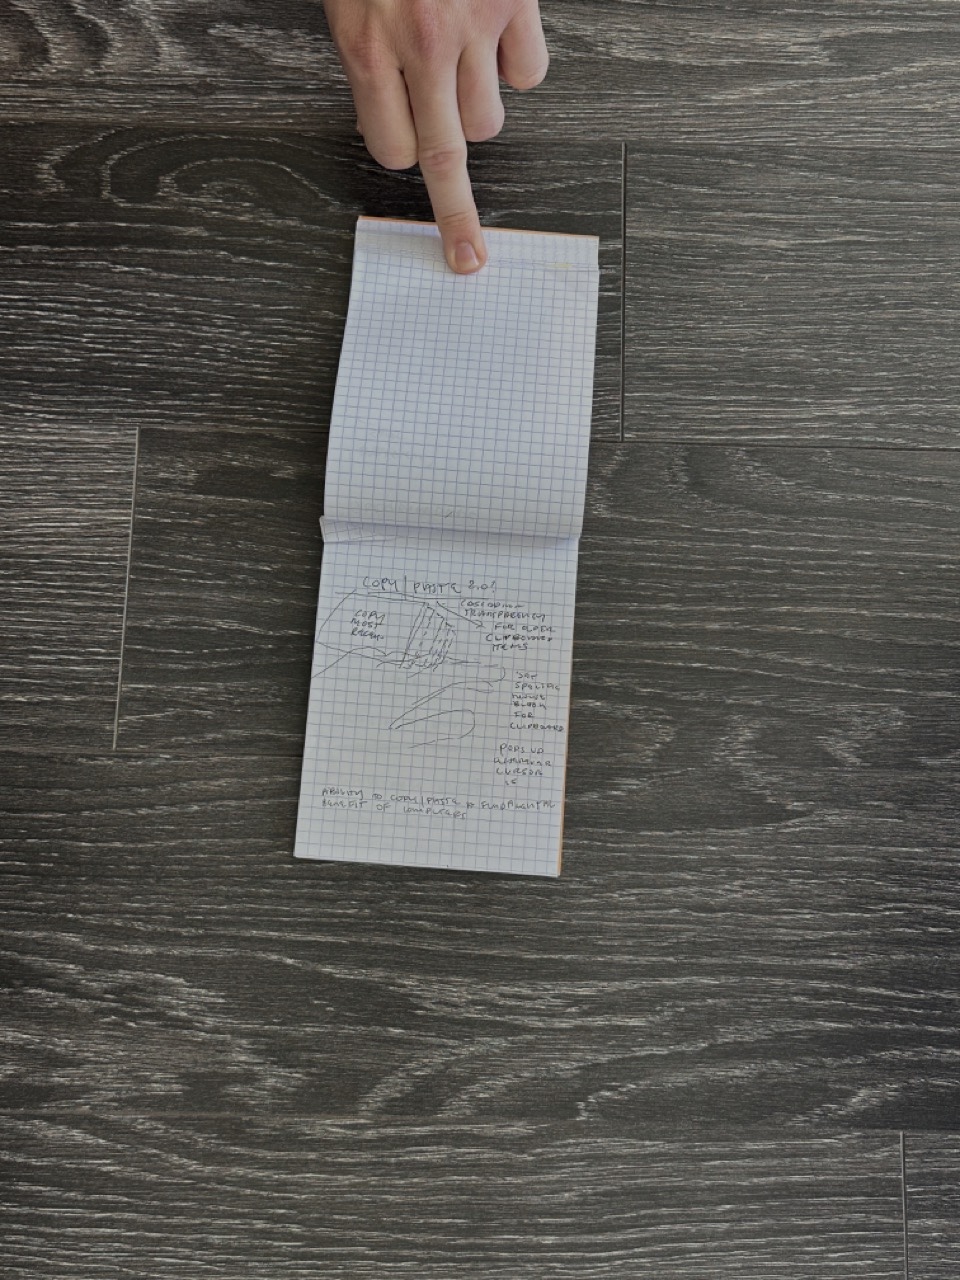 COPY / PASTE 2.0!
COPY
MOST
RECENT
TRANSPARENCY
FOR OLDER
CLIPBOARD
ITEMS
SPECIFIC
MOUSE
FOR
CLIPBOARD
POPS UP
WHEREVER
CURSOR
IS
ABILITY TO COPY/PASTE A FUNDAMENTAL
BENEFIT OF COMPUTERS